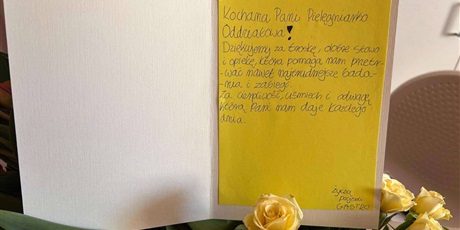 Kochana Pani Pielęgniarko
Oddziałowa!
Dziękujemy za troskę, dobre słowo
i opiekę, która pomaga nam przetr-
-wać nawet najtrudniejsze bada-
-nia i zabiegi.
Za cierpliwość, uśmiech i odwagę,
którą Pani nam daje każdego
dnia.
życzą
GASTRO